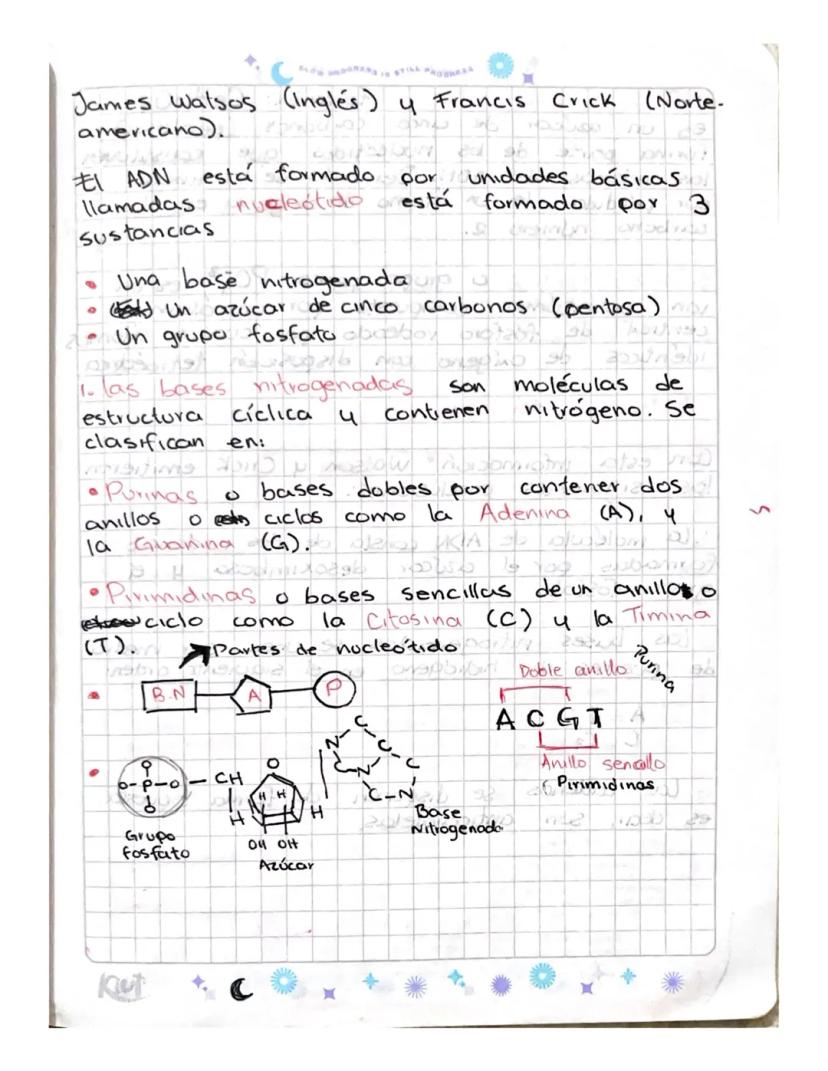 SLOW PROGRESS IS STILL PROGRESS
James Watsos (inglés) y Francis Crick (Norte-
americano).
El ADN está formado por unidades básicas
llamadas nucleótido está formado por 3
sustancias
• Una base nitrogenada
• Un azúcar de cinco carbonos (pentosa)
• Un grupo fosfato
1. las bases nitrogenadas son moléculas de
estructura cíclica y contienen nitrógeno. Se
clasifican en:
• Purinas o bases dobles por contener dos
anillos o ciclos como la Adenina (A), y
la Guanina (G).
• Pirimidinas o bases sencillas de un anillo o
ciclo como la Citosina (C) y la Timina
(T).
Partes de nucleótido
• B.N A P
Doble anillo Purina
A C G T
Anillo sencillo
(Pirimidinas
• O
O-P-O - CH O
O
H H H H
OH OH
C
N C
C N C
C-N
Grupo
fosfato
Azúcar
Base
Nitrogenado
Kiut